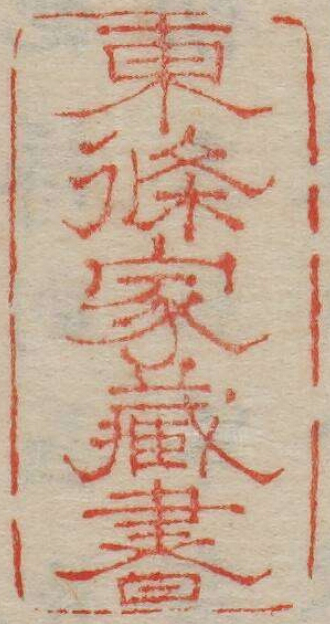 東條家藏書